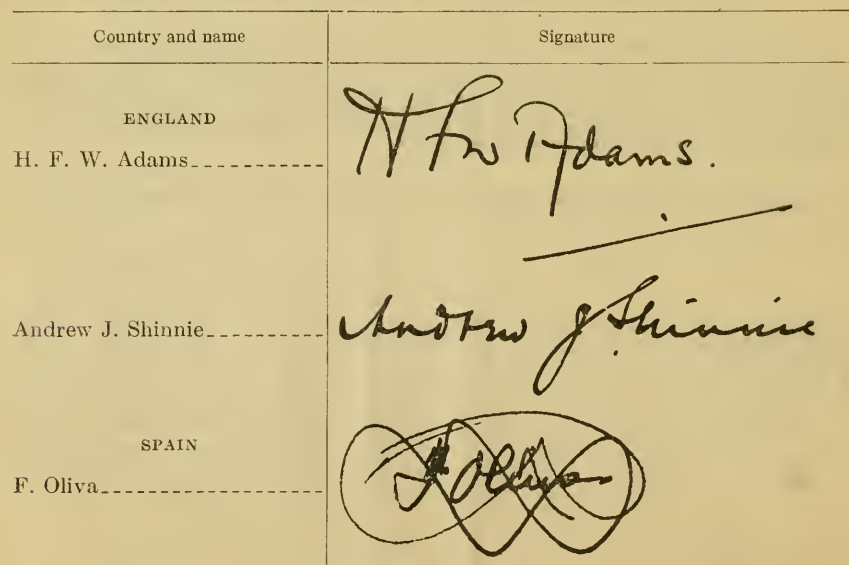 Country and name
Signature
ENGLAND
H. F. W. Adams
H F W Adams.
Andrew J. Shinnie
Andrew J Shinnie
SPAIN
F. Oliva
F Oliva